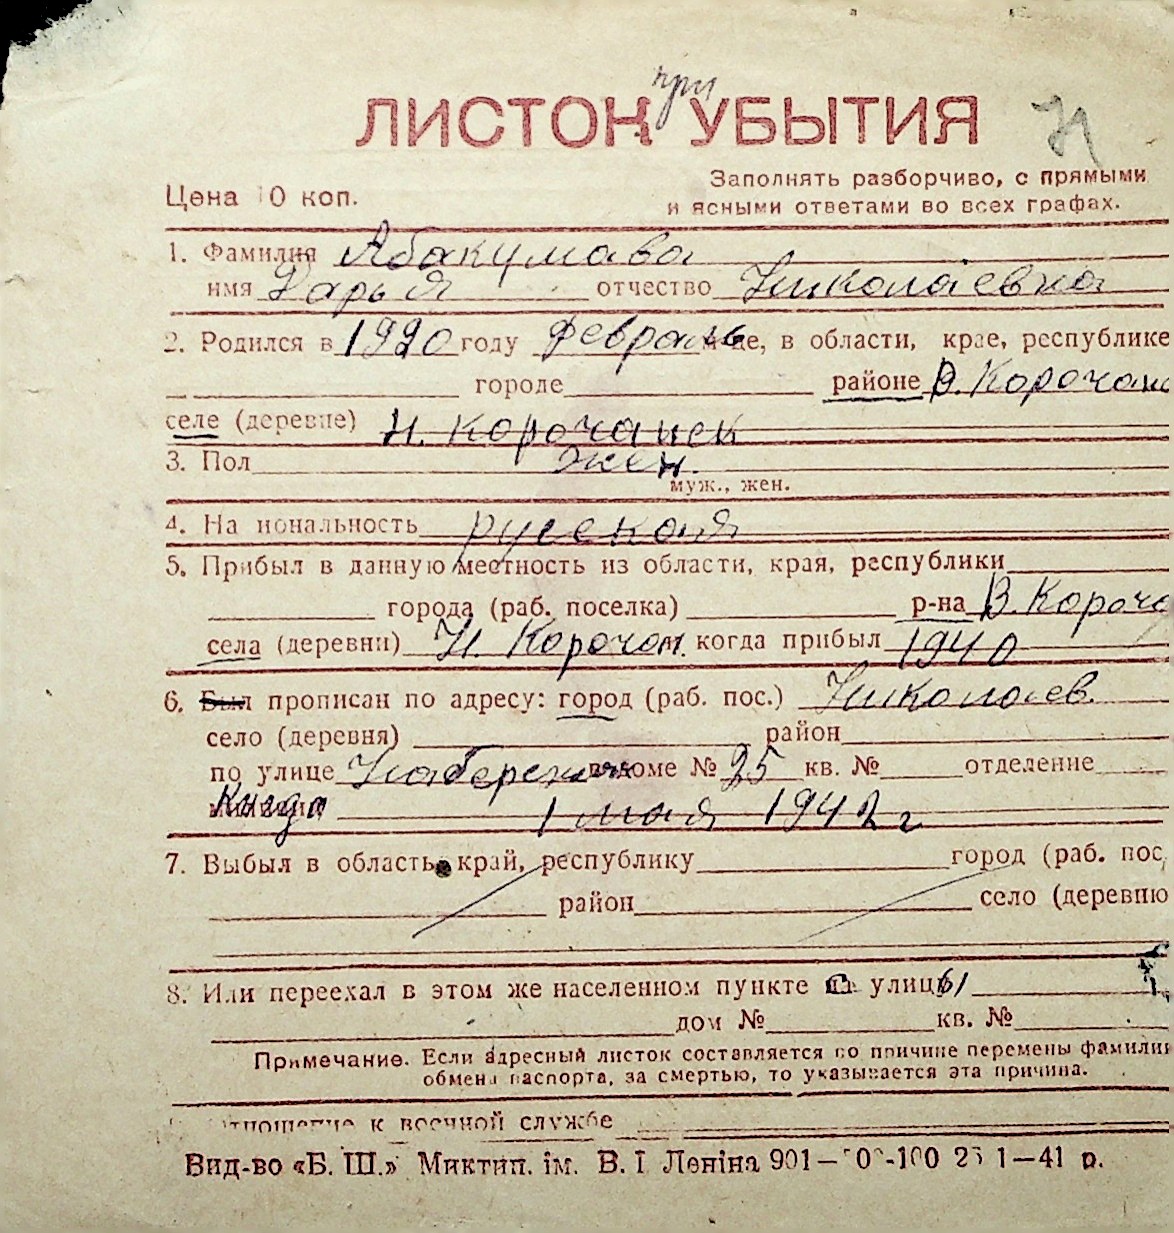 при
ЛИСТОК УБЫТИЯ
Цена 10 коп.
Заполнять разборчиво, с прямыми
и ясными ответами во всех графах.
1. Фамилия Абакумава
имя Дарья отчество Николаевна
2. Родился в 1920 году февраль м-це, в области, крае, республике
городе районе В. Корочан
селе (деревне) Н. Корочанск
3. Пол жен.
муж., жен.
4. Национальность русская
5. Прибыл в данную местность из области, края, республики
города (раб. поселка) р-на В. Короча
села (деревни) Н. Корочан. когда прибыл 1940
6. Был прописан по адресу: город (раб. пос.) Николаев.
село (деревня) район
по улице Набережн в доме № 25 кв. № отделение
Когда 1 мая 1942 г
7. Выбыл в область, край, республику город (раб. пос.
район село (деревню
8. Или переехал в этом же населенном пункте с улицы
дом № кв. №
Примечание. Если адресный листок составляется по причине перемены фамилии
обмена паспорта, за смертью, то указывается эта причина.
Отношение к военной службе
Вид-во «Б. Ш.» Миктип. ім. В. І Леніна 901— -100 1—41 р.